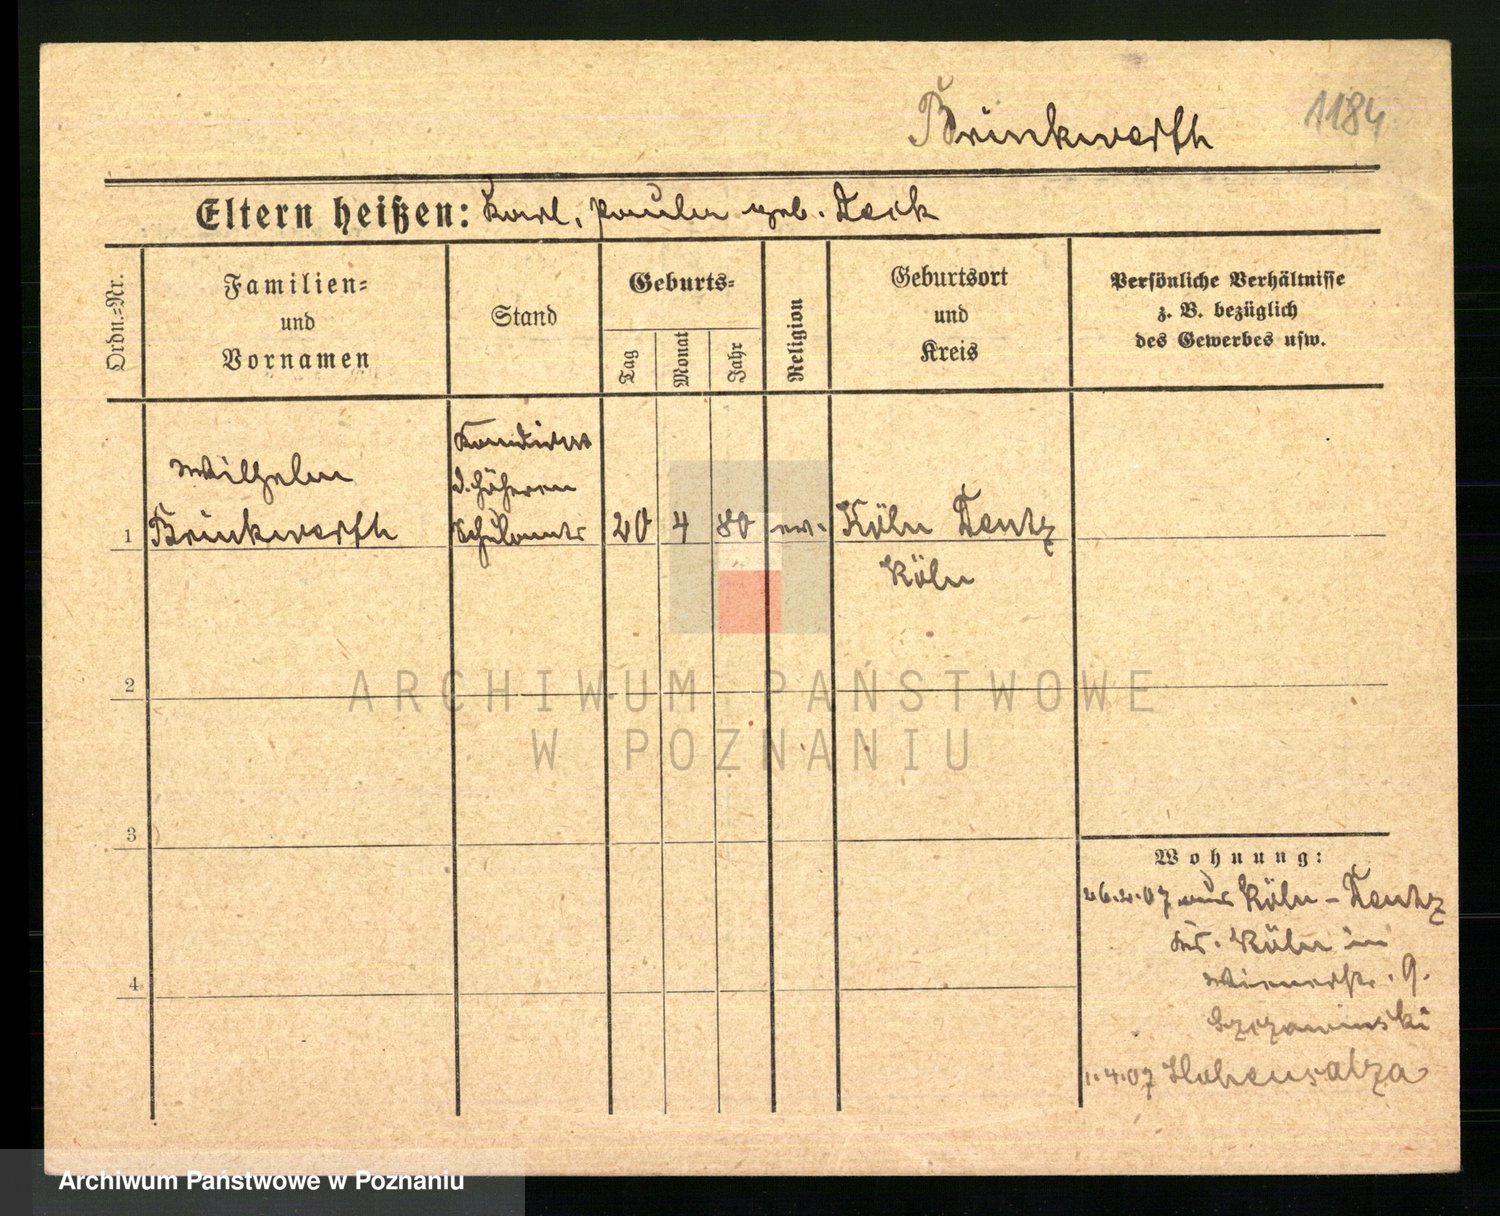 Brinkwerth
1184
Eltern heißen: Karl, Paula geb. Teik
Ordn.-Nr.
Familien-
und
Vornamen
Stand
Geburts-
Tag
Monat
Jahr
Religion
Geburtsort
und
Kreis
Persönliche Verhältnisse
z. B. bezüglich
des Gewerbes usw.
Kandidat
Wilhelm
d. höheren
1 Brinkwerth Schulamts 20 4 80 ev. Köln Deutz
Köln
2
ARCHIWUM PAŃSTWOWE
W POZNANIU
3
Wohnung:
26.2.07 aus Köln - Deutz
Kr. Köln in
4
Wienerstr. 9.
Szczawinski
1.4.07 Hohensalza
Archiwum Państwowe w Poznaniu